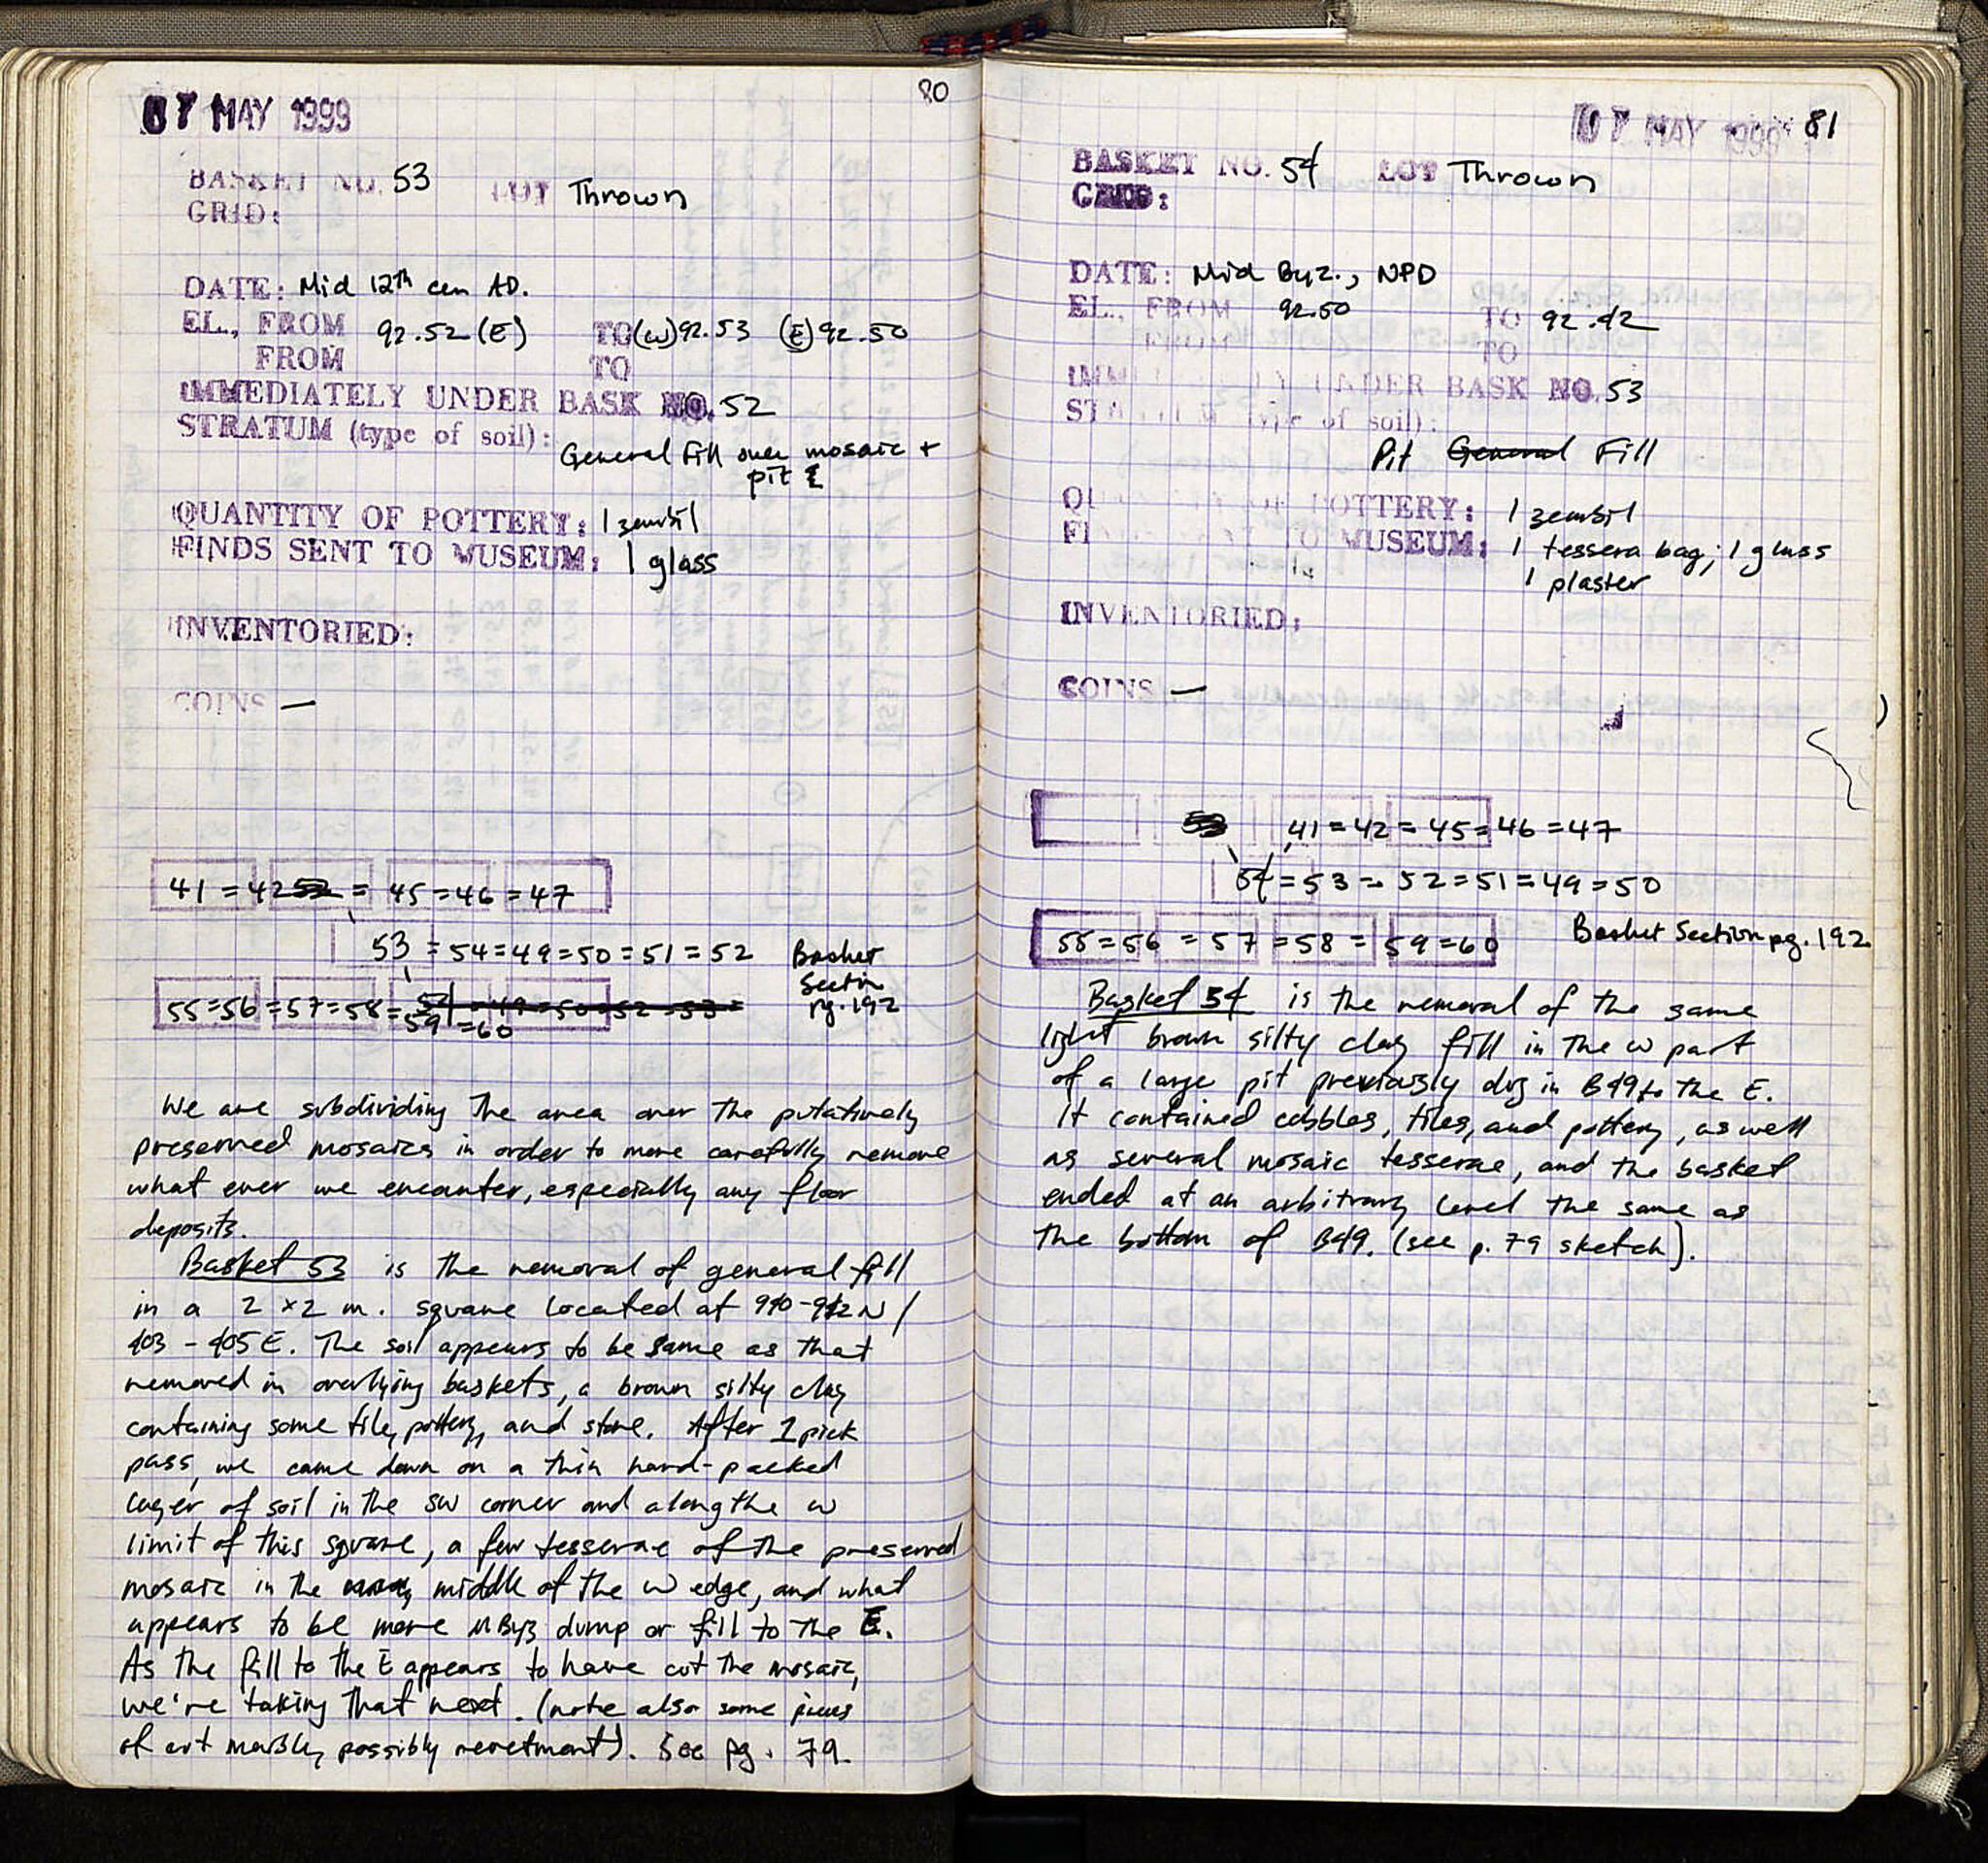 80
07 MAY 1999
BASKET NO. 53 LOT Thrown
GRID:
DATE: Mid 12th cen AD.
EL., FROM 92.52 (E) TO (W) 92.53 (E) 92.50
FROM TO
IMMEDIATELY UNDER BASK NO. 52
STRATUM (type of soil):
General fill over mosaic +
pit E
QUANTITY OF POTTERY: 1 zembil
FINDS SENT TO MUSEUM: 1 glass
INVENTORIED:
COINS —
41 = 42 = 45 = 46 = 47
53 = 54 = 49 = 50 = 51 = 52
Basket
Section
pg. 192
55 = 56 = 57 = 58 = 54 = 49 = 50 = 52 = 53 =
59 = 60
We are subdividing the area over the putatively
preserved mosaics in order to more carefully remove
what ever we encounter, especially any floor
deposits.
Basket 53 is the removal of general fill
in a 2 x 2 m. square located at 940-942 N /
403 - 405 E. The soil appears to be same as that
removed in overlying baskets, a brown silty clay
containing some tile, pottery, and stone. After 1 pick
pass, we came down on a thin hard-packed
layer of soil in the SW corner and along the W
limit of this square, a few tesserae of the preserved
mosaic in the middle of the W edge, and what
appears to be more MByz dump or fill to the E.
As the fill to the E appears to have cut the mosaic,
we're taking that next. (note also some pieces
of cut marble, possibly revetment). See pg. 79.
07 MAY 1999 81
BASKET NO. 54 LOT Thrown
GRID:
DATE: Mid Byz., NPD
EL., FROM 92.50 TO 92.42
TO
IMMEDIATELY UNDER BASK NO. 53
STRATUM (type of soil):
Pit General Fill
QUANTITY OF POTTERY: 1 zembil
FINDS SENT TO MUSEUM: 1 tessera bag; 1 glass
1 plaster
INVENTORIED:
COINS —
53 41 = 42 = 45 = 46 = 47
54 = 53 = 52 = 51 = 49 = 50
55 = 56 = 57 = 58 = 59 = 60 Basket Section pg. 192
Basket 54 is the removal of the same
light brown silty clay fill in the W part
of a large pit previously dug in B49 to the E.
It contained cobbles, tiles, and pottery, as well
as several mosaic tesserae, and the basket
ended at an arbitrary level the same as
the bottom of B49. (see p. 79 sketch).